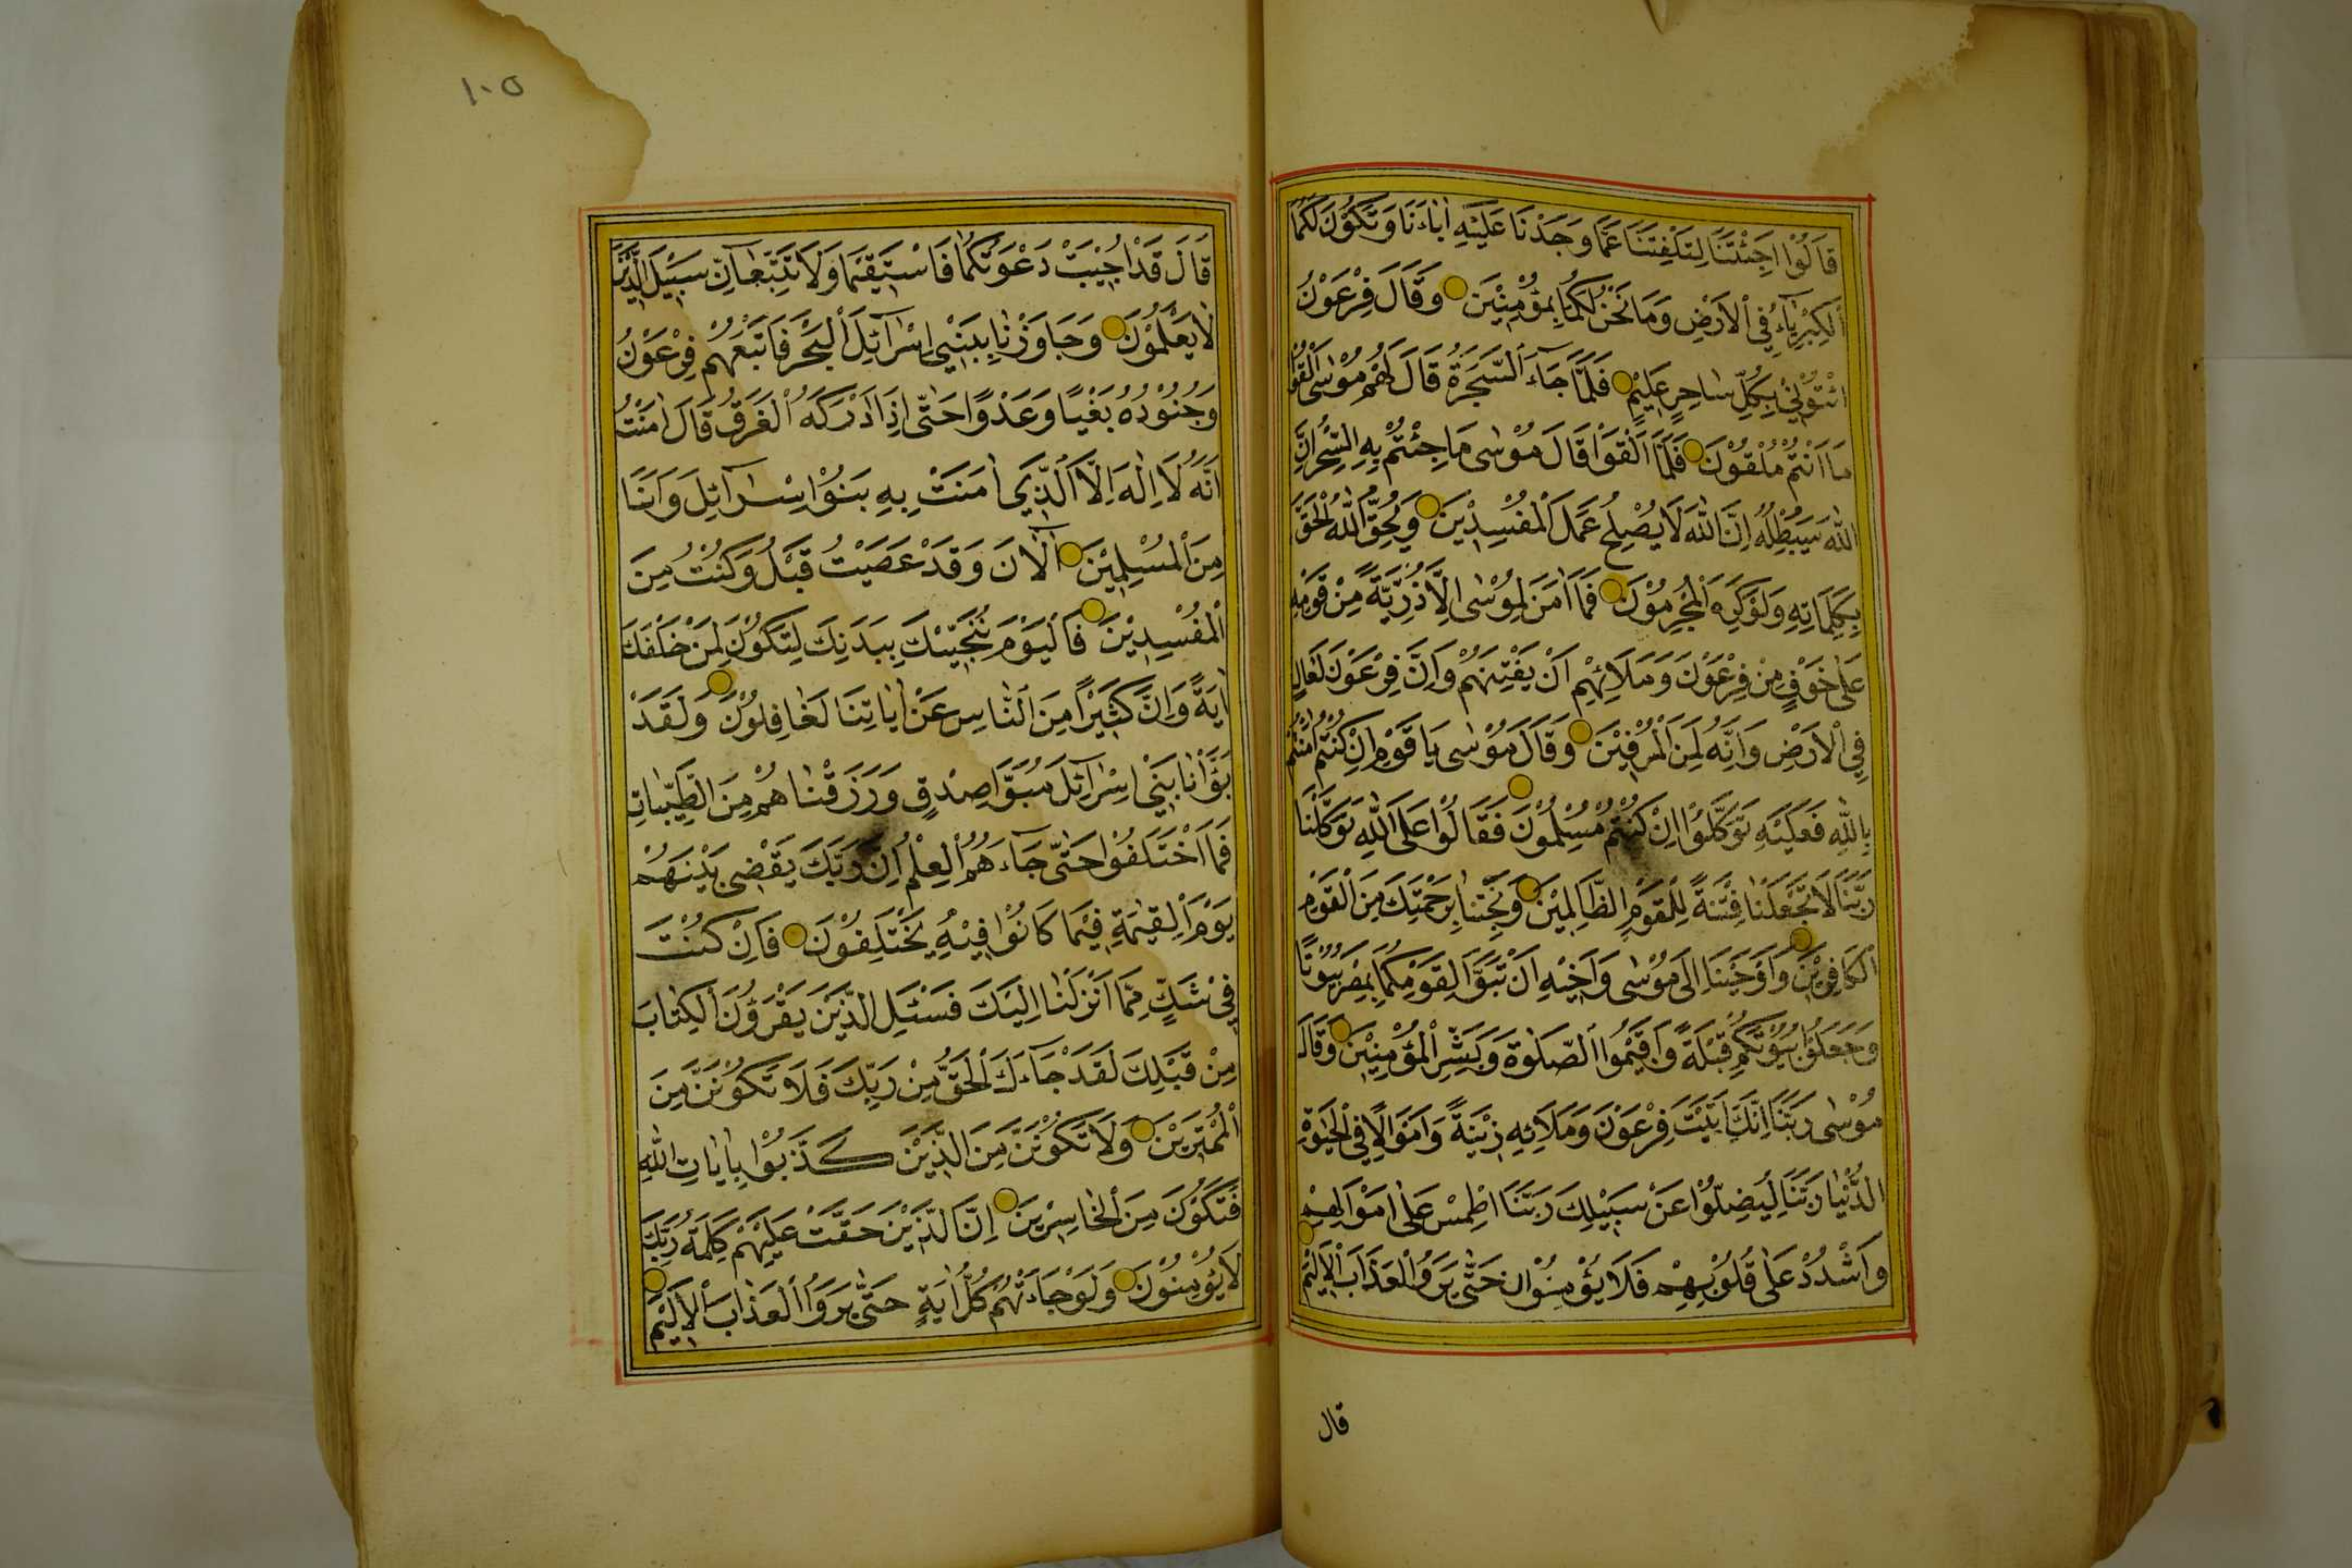 قَالُوْا اَجِئْتَنَا لِتَلْفِتَنَا عَمَّا وَجَدْنَا عَلَيْهِ اٰبَاءَنَا وَتَكُوْنَ لَكُمَا
الْكِبْرِيَاءُ فِي الْاَرْضِ وَمَا نَحْنُ لَكُمَا بِمُؤْمِنِيْنَ وَقَالَ فِرْعَوْنُ
ائْتُوْنِيْ بِكُلِّ سَاحِرٍ عَلِيْمٍ فَلَمَّا جَآءَ السَّحَرَةُ قَالَ لَهُمْ مُوْسٰى اَلْقُوْا
مَا اَنْتُمْ مُلْقُوْنَ فَلَمَّا اَلْقَوْا قَالَ مُوْسٰى مَا جِئْتُمْ بِهِ السِّحْرُ اِنَّ
اللّٰهَ سَيُبْطِلُهُ اِنَّ اللّٰهَ لَا يُصْلِحُ عَمَلَ الْمُفْسِدِيْنَ وَيُحِقُّ اللّٰهُ الْحَقَّ
بِكَلِمَاتِهِ وَلَوْ كَرِهَ الْمُجْرِمُوْنَ فَمَا اٰمَنَ لِمُوْسٰى اِلَّا ذُرِّيَّةٌ مِنْ قَوْمِهِ
عَلٰى خَوْفٍ مِنْ فِرْعَوْنَ وَمَلَائِهِمْ اَنْ يَفْتِنَهُمْ وَاِنَّ فِرْعَوْنَ لَعَالٍ
فِي الْاَرْضِ وَاِنَّهُ لَمِنَ الْمُسْرِفِيْنَ وَقَالَ مُوْسٰى يَا قَوْمِ اِنْ كُنْتُمْ اٰمَنْتُمْ
بِاللّٰهِ فَعَلَيْهِ تَوَكَّلُوْا اِنْ كُنْتُمْ مُسْلِمُوْنَ فَقَالُوْا عَلَى اللّٰهِ تَوَكَّلْنَا
رَبَّنَا لَا تَجْعَلْنَا فِتْنَةً لِلْقَوْمِ الظَّالِمِيْنَ وَنَجِّنَا بِرَحْمَتِكَ مِنَ الْقَوْمِ
الْكَافِرِيْنَ وَاَوْحَيْنَا اِلٰى مُوْسٰى وَاَخِيْهِ اَنْ تَبَوَّاَ لِقَوْمِكُمَا بِمِصْرَ بُيُوْتًا
وَجَعَلُوْا بُيُوْتَكُمْ قِبْلَةً وَاَقِيْمُوا الصَّلٰوةَ وَبَشِّرِ الْمُؤْمِنِيْنَ وَقَالَ
مُوْسٰى رَبَّنَا اِنَّكَ اٰتَيْتَ فِرْعَوْنَ وَمَلَائِهِ زِيْنَةً وَاَمْوَالًا فِي الْحَيٰوةِ
الدُّنْيَا رَبَّنَا لِيُضِلُّوْا عَنْ سَبِيْلِكَ رَبَّنَا اطْمِسْ عَلٰى اَمْوَالِهِمْ
وَاشْدُدْ عَلٰى قُلُوْبِهِمْ فَلَا يُؤْمِنُوْا حَتّٰى يَرَوُا الْعَذَابَ الْاَلِيْمَ
قال
١٠٥
قَالَ قَدْ اُجِيْبَتْ دَعْوَتُكُمَا فَاسْتَقِيْمَا وَلَا تَتَّبِعَآنِّ سَبِيْلَ الَّذِيْنَ
لَا يَعْلَمُوْنَ وَجَاوَزْنَا بِبَنِيْ اِسْرَآئِلَ الْبَحْرَ فَاَتْبَعَهُمْ فِرْعَوْنُ
وَجُنُوْدُهُ بَغْيًا وَعَدْوًا حَتّٰى اِذَا اَدْرَكَهُ الْغَرَقُ قَالَ اٰمَنْتُ
اَنَّهُ لَا اِلٰهَ اِلَّا الَّذِيْ اٰمَنَتْ بِهِ بَنُوْا اِسْرَآئِلَ وَاَنَا
مِنَ الْمُسْلِمِيْنَ آلْاٰنَ وَقَدْ عَصَيْتُ قَبْلُ وَكُنْتُ مِنَ
الْمُفْسِدِيْنَ فَالْيَوْمَ نُنَجِّيْكَ بِبَدَنِكَ لِتَكُوْنَ لِمَنْ خَلْفَكَ
اٰيَةً وَاِنَّ كَثِيْرًا مِنَ النَّاسِ عَنْ اٰيَاتِنَا لَغَافِلُوْنَ وَلَقَدْ
بَوَّاْنَا بَنِيْ اِسْرَآئِلَ مُبَوَّاَ صِدْقٍ وَرَزَقْنَاهُمْ مِنَ الطَّيِّبَاتِ
فَمَا اخْتَلَفُوْا حَتّٰى جَآءَهُمُ الْعِلْمُ اِنَّ رَبَّكَ يَقْضِيْ بَيْنَهُمْ
يَوْمَ الْقِيٰمَةِ فِيْمَا كَانُوْا فِيْهِ يَخْتَلِفُوْنَ فَاِنْ كُنْتَ
فِيْ شَكٍّ مِمَّا اَنْزَلْنَا اِلَيْكَ فَسْئَلِ الَّذِيْنَ يَقْرَؤُنَ الْكِتَابَ
مِنْ قَبْلِكَ لَقَدْ جَآءَكَ الْحَقُّ مِنْ رَبِّكَ فَلَا تَكُوْنَنَّ مِنَ
الْمُمْتَرِيْنَ وَلَا تَكُوْنَنَّ مِنَ الَّذِيْنَ كَذَّبُوْا بِاٰيَاتِ اللّٰهِ
فَتَكُوْنَ مِنَ الْخَاسِرِيْنَ اِنَّ الَّذِيْنَ حَقَّتْ عَلَيْهِمْ كَلِمَةُ رَبِّكَ
لَا يُؤْمِنُوْنَ وَلَوْ جَاءَتْهُمْ كُلُّ اٰيَةٍ حَتّٰى يَرَوُا الْعَذَابَ الْاَلِيْمَ